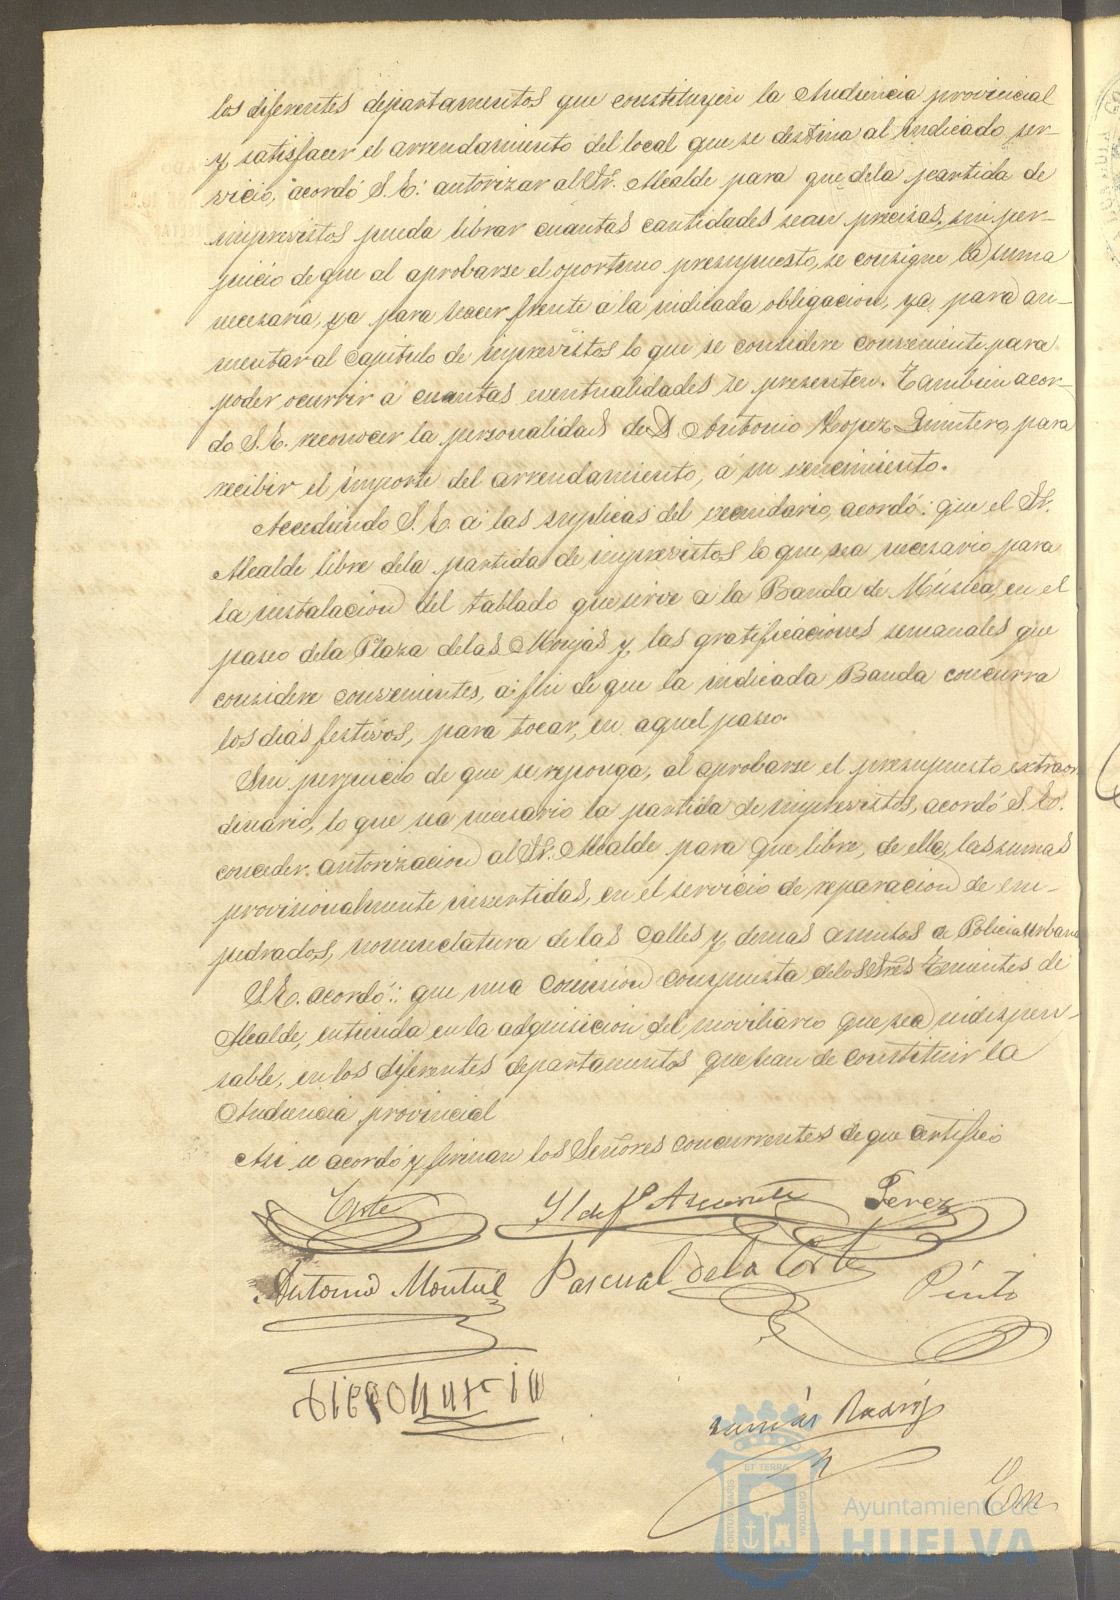 los diferentes departamentos que constituyen la Audiencia provincial
y satisfacer el arrendamiento del local que se destina al indicado ser-
vicio, acordó S. E. autorizar al Sr. Alcalde para que dela partida de
imprevistos pueda librar cuantas cantidades sean precisas, sin per-
juicio de que al aprobarse el oportuno presupuesto, se consigne la suma
necesaria, ya para hacer frente á la indicada obligacion, ya, para au-
mentar al capitulo de imprevistos lo que se considere conveniente para
poder ocurrir á cuantas eventualidades se presenten. Tambien acor-
do S. E. reconocer la personalidad de D Antonio Lopez Quintero, para
recibir el importe del arrendamiento, á su vencimiento.
Accediendo S. E. á las suplicas del vecindario, acordó: que el Sr.
Alcalde libre dela partida de imprevistos lo que sea necesario para
la instalacion del tablado que sirve á la Banda de Música, en el
paseo dela Plaza delas Monjas y, las gratificaciones semanales que
considere convenientes, á fin de que la indicada Banda concurra
los dias festivos, para tocar, en aquel paseo.
Sin perjuicio de que se reponga, al aprobarse el presupuesto extraor
dinario, lo que sea necesario la partida de imprevistos, acordó S. E.
conceder autorizacion al Sr. Alcalde para que libre, de ella, las sumas
provisionalmente invertidas, en el servicio de reparacion de em-
pedrados, nomenclatura de las calles y demas asuntos de Policia urbana
S. E. acordó: que una comision compuesta delos Sres Tenientes de
Alcalde, entienda en la adquisicion del moviliario que sea indispen-
sable, en los diferentes departamentos que han de constituir la
Audiencia provincial
Asi se acordó y firman los Señores concurrentes de que certifico
Corte Yl de fº Azcarate Perez
Antonio Montiel Pascual dela Corte Pinto
Tomás Rodrig
En
PORTUS MARIS
ET TERRAE
CUSTODIA
Ayuntamiento de
HUELVA